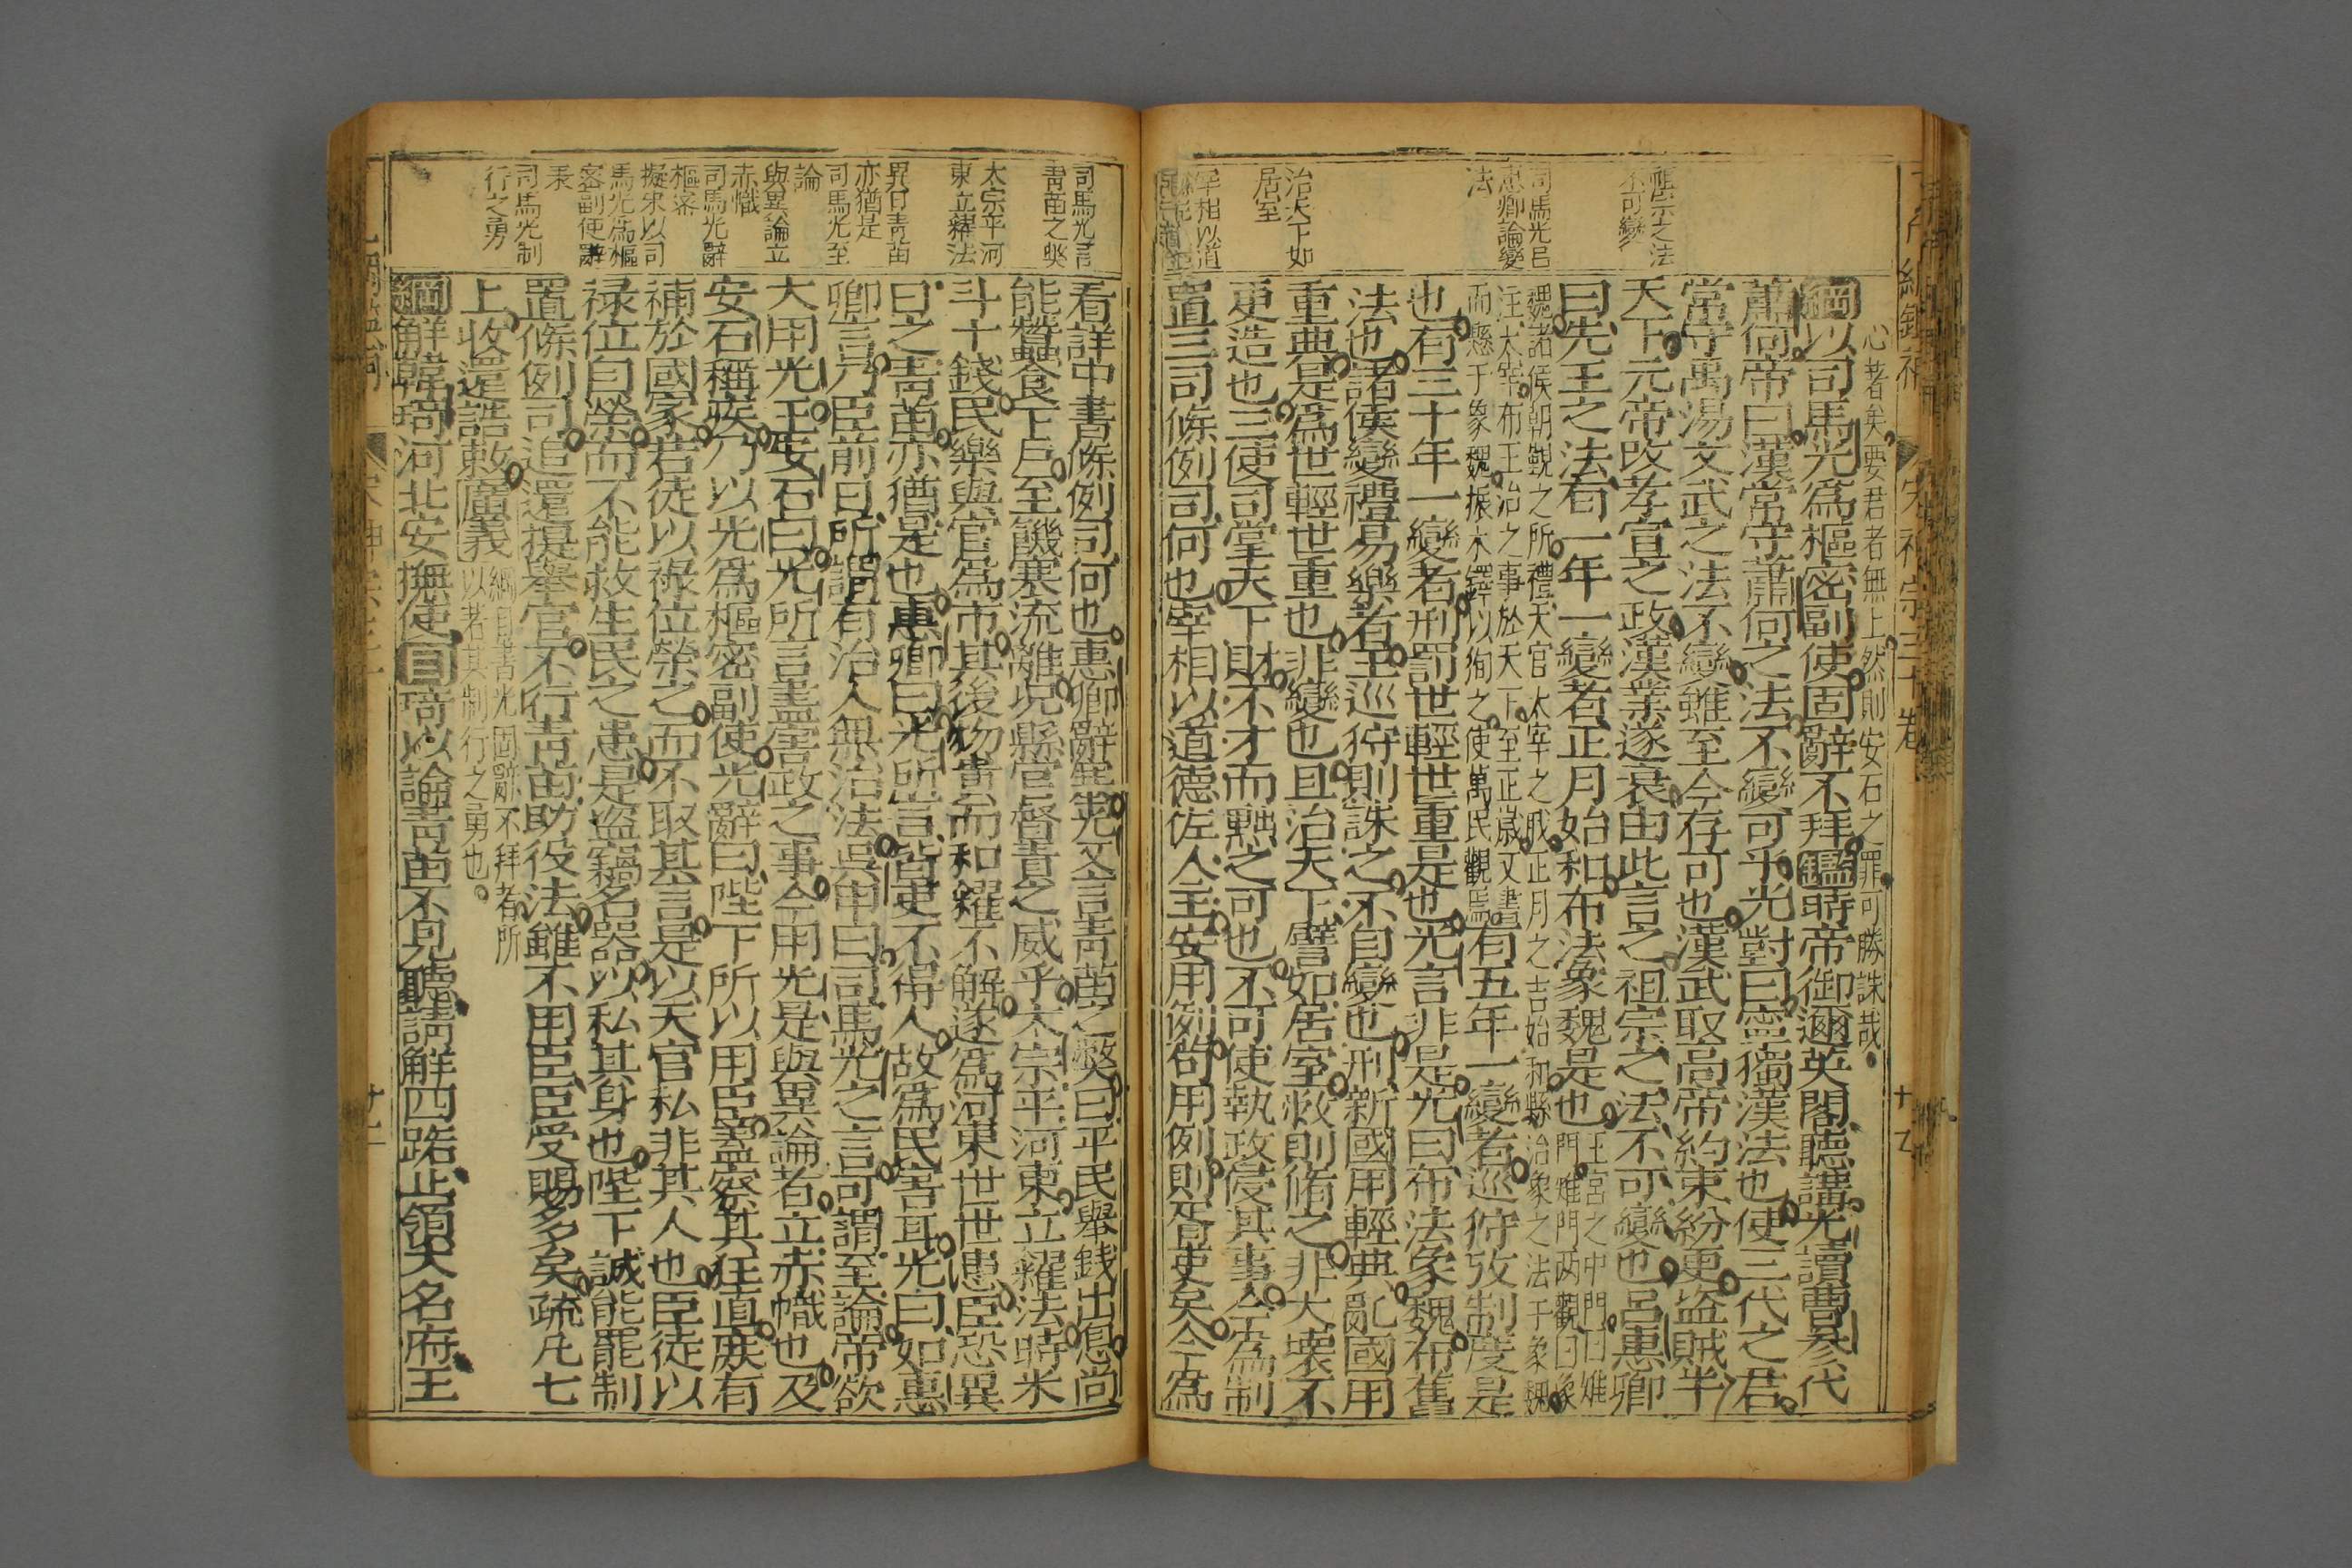 祖宗之法
不可變
司馬光呂
惠卿論變
法
治天下如
居室
宰相以道
心者矣要君者無上然則安石之罪可勝誅哉
綱以司馬光爲樞密副使固辭不拜鑑時帝御邇英閣聽講光讀曹參代
蕭何帝曰漢常守蕭何之法不變可乎光對曰寧獨漢法也使三代之君
當守禹湯文武之法不變雖至今存可也漢武取高帝約束紛更盜賊半
天下元帝改孝宣之政漢業遂衰由此言之祖宗之法不可變也呂惠卿
曰先王之法有一年一變者正月始和布法象魏是也
王宮之中門曰雉
門雉門两觀曰象
魏諸侯朝覲之所禮天官太宰之職正月之吉始和縣治象之法于象魏
注太宰布王治之事於天下至正歲又書
而懸于象魏振木鐸以徇之使萬民觀焉
有五年一變者巡狩攷制度是
也有三十年一變者刑罰世輕世重是也光言非是光曰布法象魏布舊
法也諸侯變禮易樂者王巡狩則誅之不自變也刑新國用輕典亂國用
重典是爲世輕世重也非變也且治天下譬如居室敝則脩之非大壊不
更造也三使司掌天下財不才而黜之可也不可使執政侵其事今爲制
置三司條例司何也宰相以道德佐人主安用例苟用例則胥吏矣今爲
司馬光言
青苗之獘
太宗平河
東立糴法
異日青苗
亦猶是
司馬光至
論
與異論立
赤幟
司馬光辭
樞密
擬宋以司
馬光爲樞
密副使辭
表
司馬光制
行之勇
看詳中書條例司何也惠卿辭塞光又言青苗之獘曰平民舉錢出息尚
能蠶食下戶至饑寒流離况縣官督責之威乎太宗平河東立糴法時米
斗十錢民樂與官爲市其後物貴而和糴不解遂爲河東世世患臣恐異
日之青苗亦猶是也惠卿曰光所言皆吏不得人故爲民害耳光曰如惠
卿言乃臣前日所謂有治人無治法吳申曰司馬光之言可謂至論帝欲
大用光王安石曰光所言盡害政之事今用光是與異論者立赤幟也及
安石稱疾乃以光爲樞密副使光辭曰陛下所以用臣蓋察其狂直庶有
補於國家若徒以祿位榮之而不取其言是以天官私非其人也臣徒以
祿位自榮而不能救生民之患是盜竊名器以私其身也陛下誠能罷制
置條例司追還提舉官不行青苗助役法雖不用臣臣受賜多矣疏凡七
上收還誥敕廣義
綱目書光固辭不拜者所
以著其制行之勇也
綱解韓琦河北安撫使目琦以論青苗不見聽請解四路止領大名府王